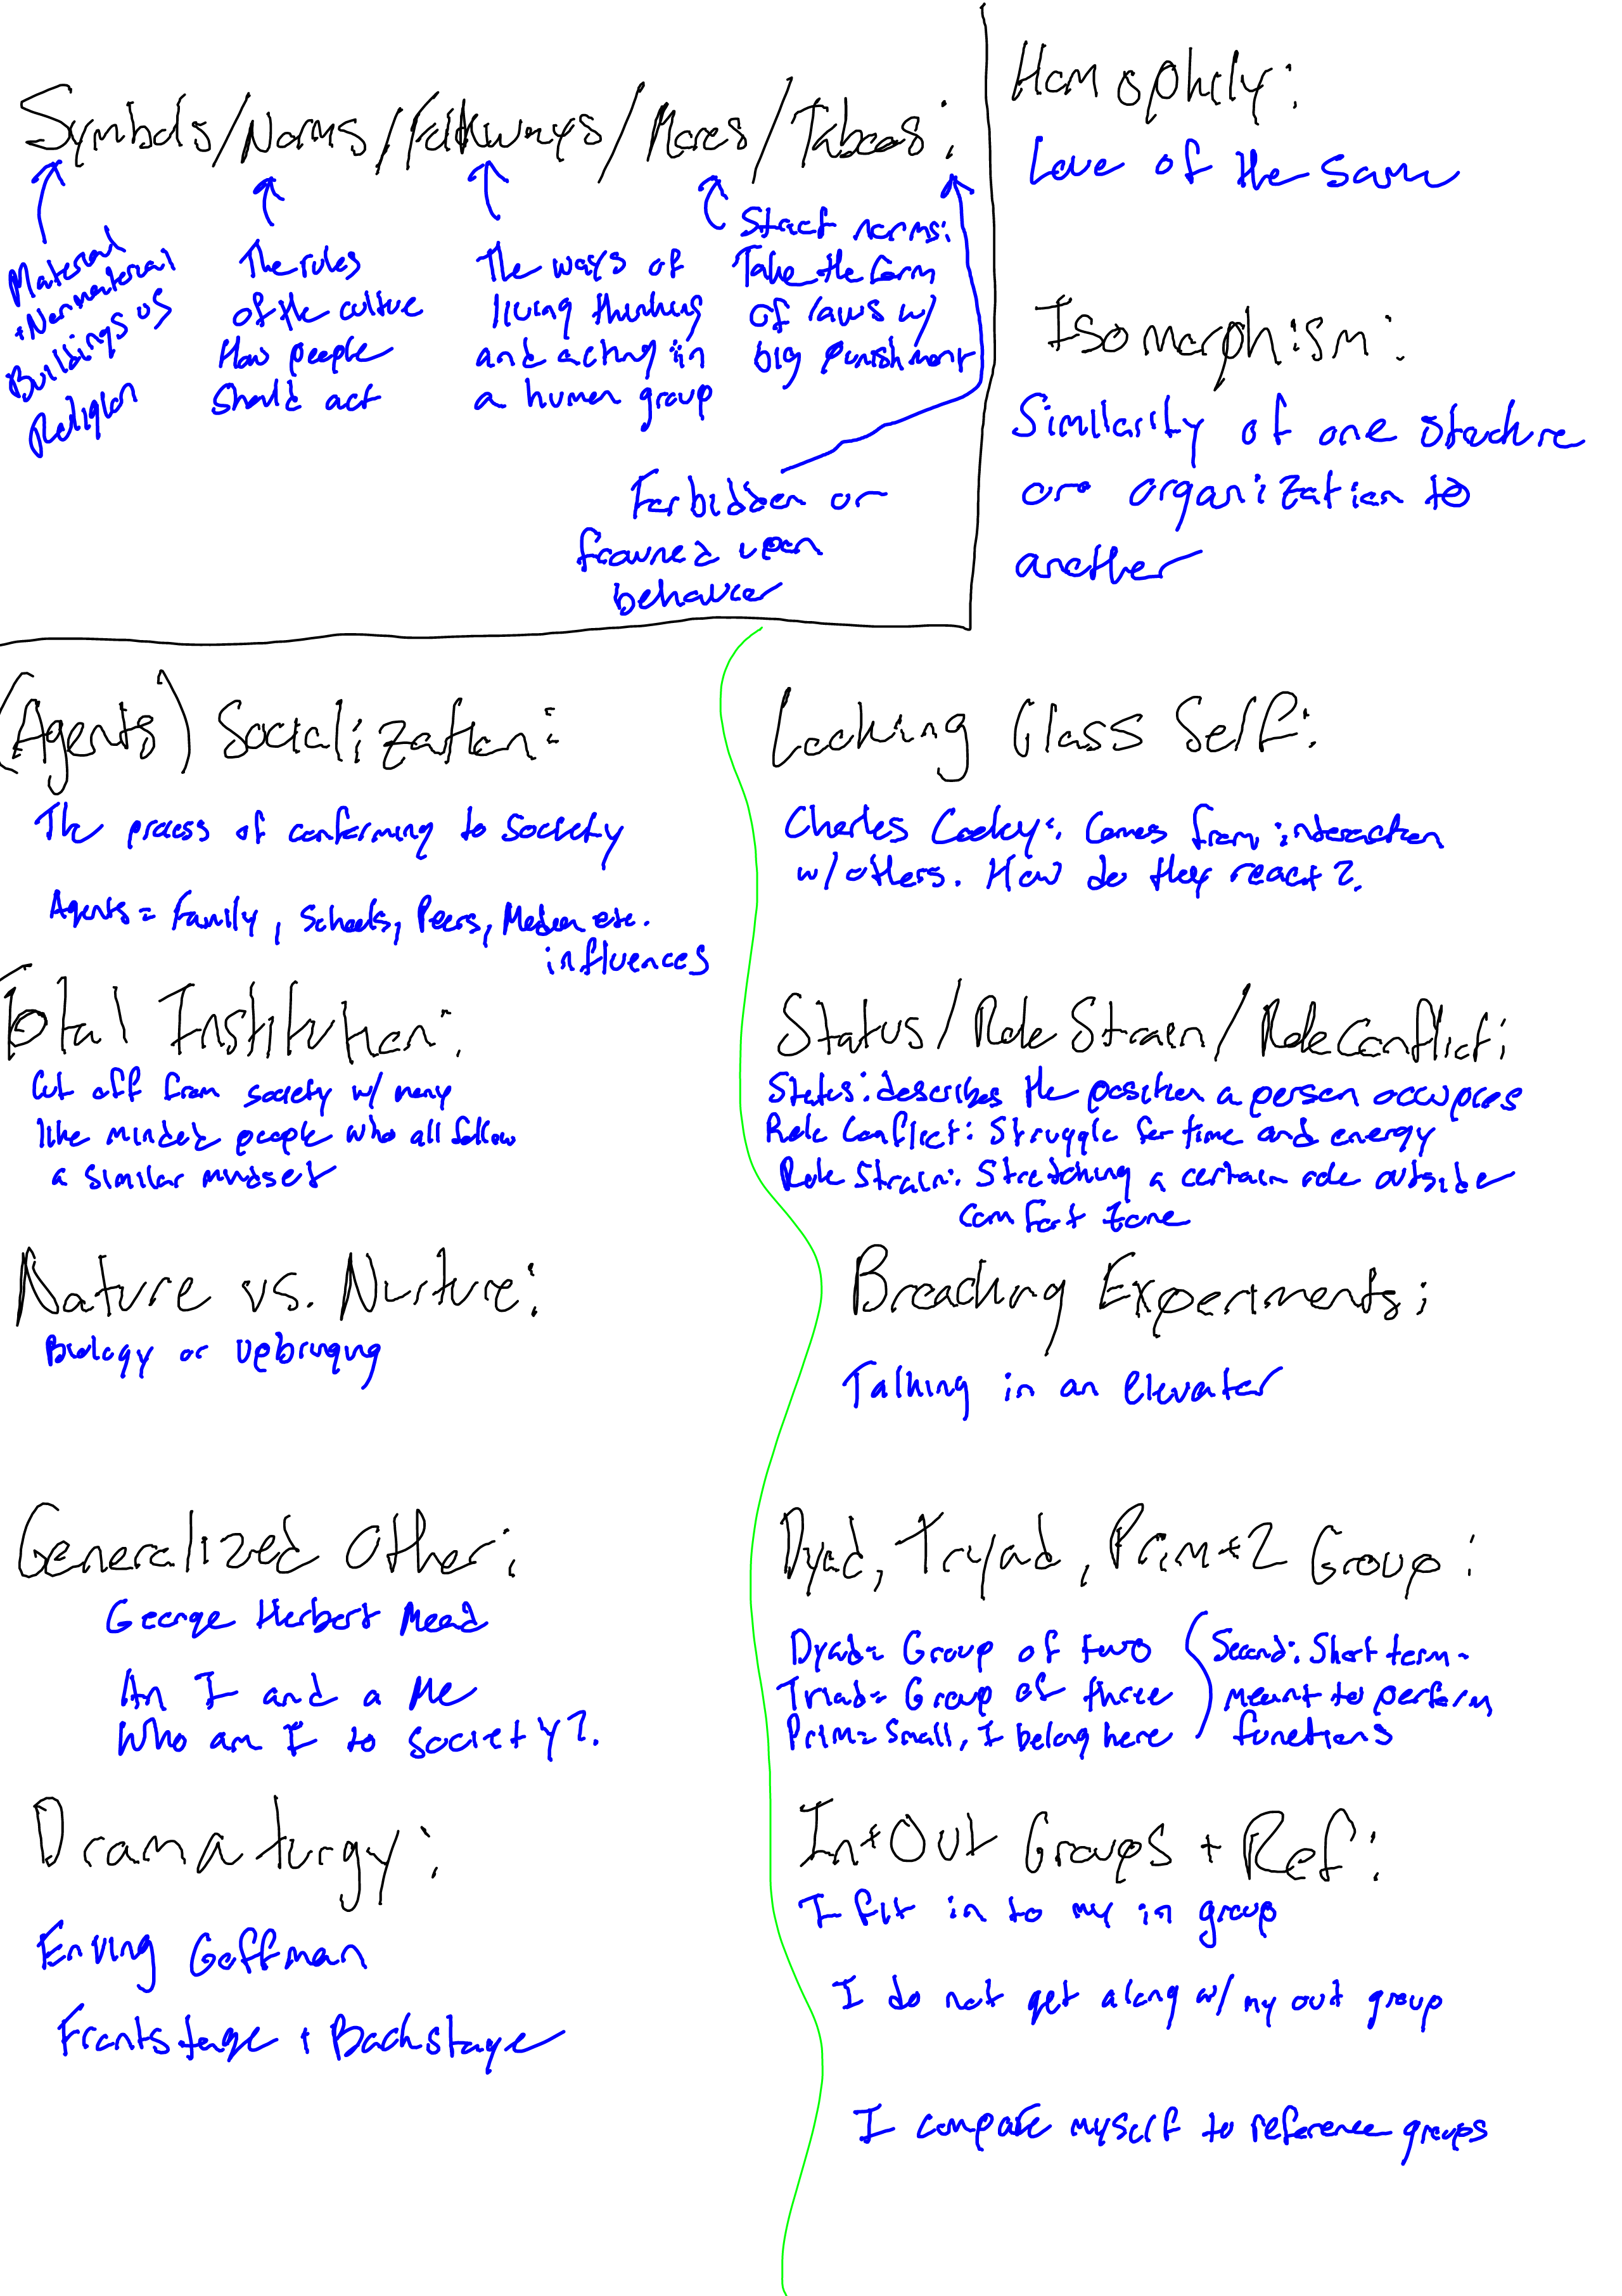 Symbols/Norms/Folkways/Mores/Taboos:
Material
+Nonmaterial
Buildings vs
Religion
The rules
of the culture
How people
should act
The ways of
living thinking
and acting in
a human group
Strict norms:
Take the form
of laws w/
big punishment
Forbidden or
frowned upon
behavior
Homophily:
Love of the same
Isomorphism:
Similarity of one structure
or organization to
another
(Agents) Socialization:
The process of conforming to society
Agents = Family, Schools, Peers, Media etc.
influences
Total Institution:
Cut off from society w/ many
like minded people who all follow
a similar mindset
Nature vs. Nurture:
Biology or Upbringing
Generalized Other:
George Herbert Mead
An I and a Me
Who am I to society?
Dramaturgy:
Erving Goffman
Frontstage + Backstage
Looking Glass Self:
Charles Cooley: Comes from interaction
w/ others. How do they react?
Status/Role Strain/Role Conflict:
Status: describes the position a person occupies
Role Conflict: Struggle for time and energy
Role Strain: Stretching a certain role outside
comfort zone
Breaching Experiments:
Talking in an elevator
Dyad, Tryad, Prim+2 Group:
Dyad= Group of two
Triad= Group of three
Prim= Small, I belong here
Second: Short term-
meant to perform
functions
In+Out Groups + Ref:
I fit in to my in group
I do not get along w/ my out group
I compare myself to reference groups